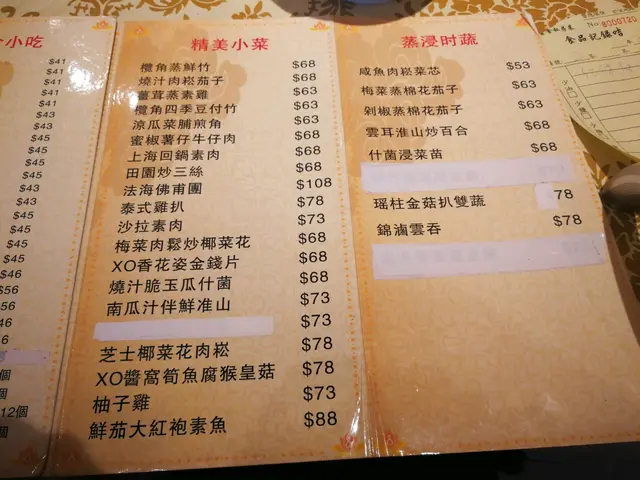 小吃
$41
$41
$41
$41
$43
$43
$45
$45
$45
$43
$45
$45
$45
$46
$56
56
46
個
個
12個
個
精美小菜
欖角蒸鮮竹 $68
燒汁肉崧茄子 $68
薑茸蒸素雞 $63
欖角四季豆付竹 $63
涼瓜菜脯煎角 $63
蜜椒薯仔牛仔肉 $68
上海回鍋素肉 $68
田園炒三絲 $68
法海佛甫團 $108
泰式雞扒 $78
沙拉素肉 $73
梅菜肉鬆炒椰菜花 $68
XO香花姿金錢片 $68
燒汁脆玉瓜什菌 $68
南瓜汁伴鮮准山 $73
$73
芝士椰菜花肉崧 $78
XO醬窩筍魚腐猴皇菇 $78
柚子雞 $73
鮮茄大紅袍素魚 $88
蒸浸时蔬
咸魚肉崧菜芯 $53
梅菜蒸棉花茄子 $63
剁椒蒸棉花茄子 $63
雲耳淮山炒百合 $68
什菌浸菜苗 $68
瑤柱金菇扒雙蔬 $78
錦滷雲吞 $78